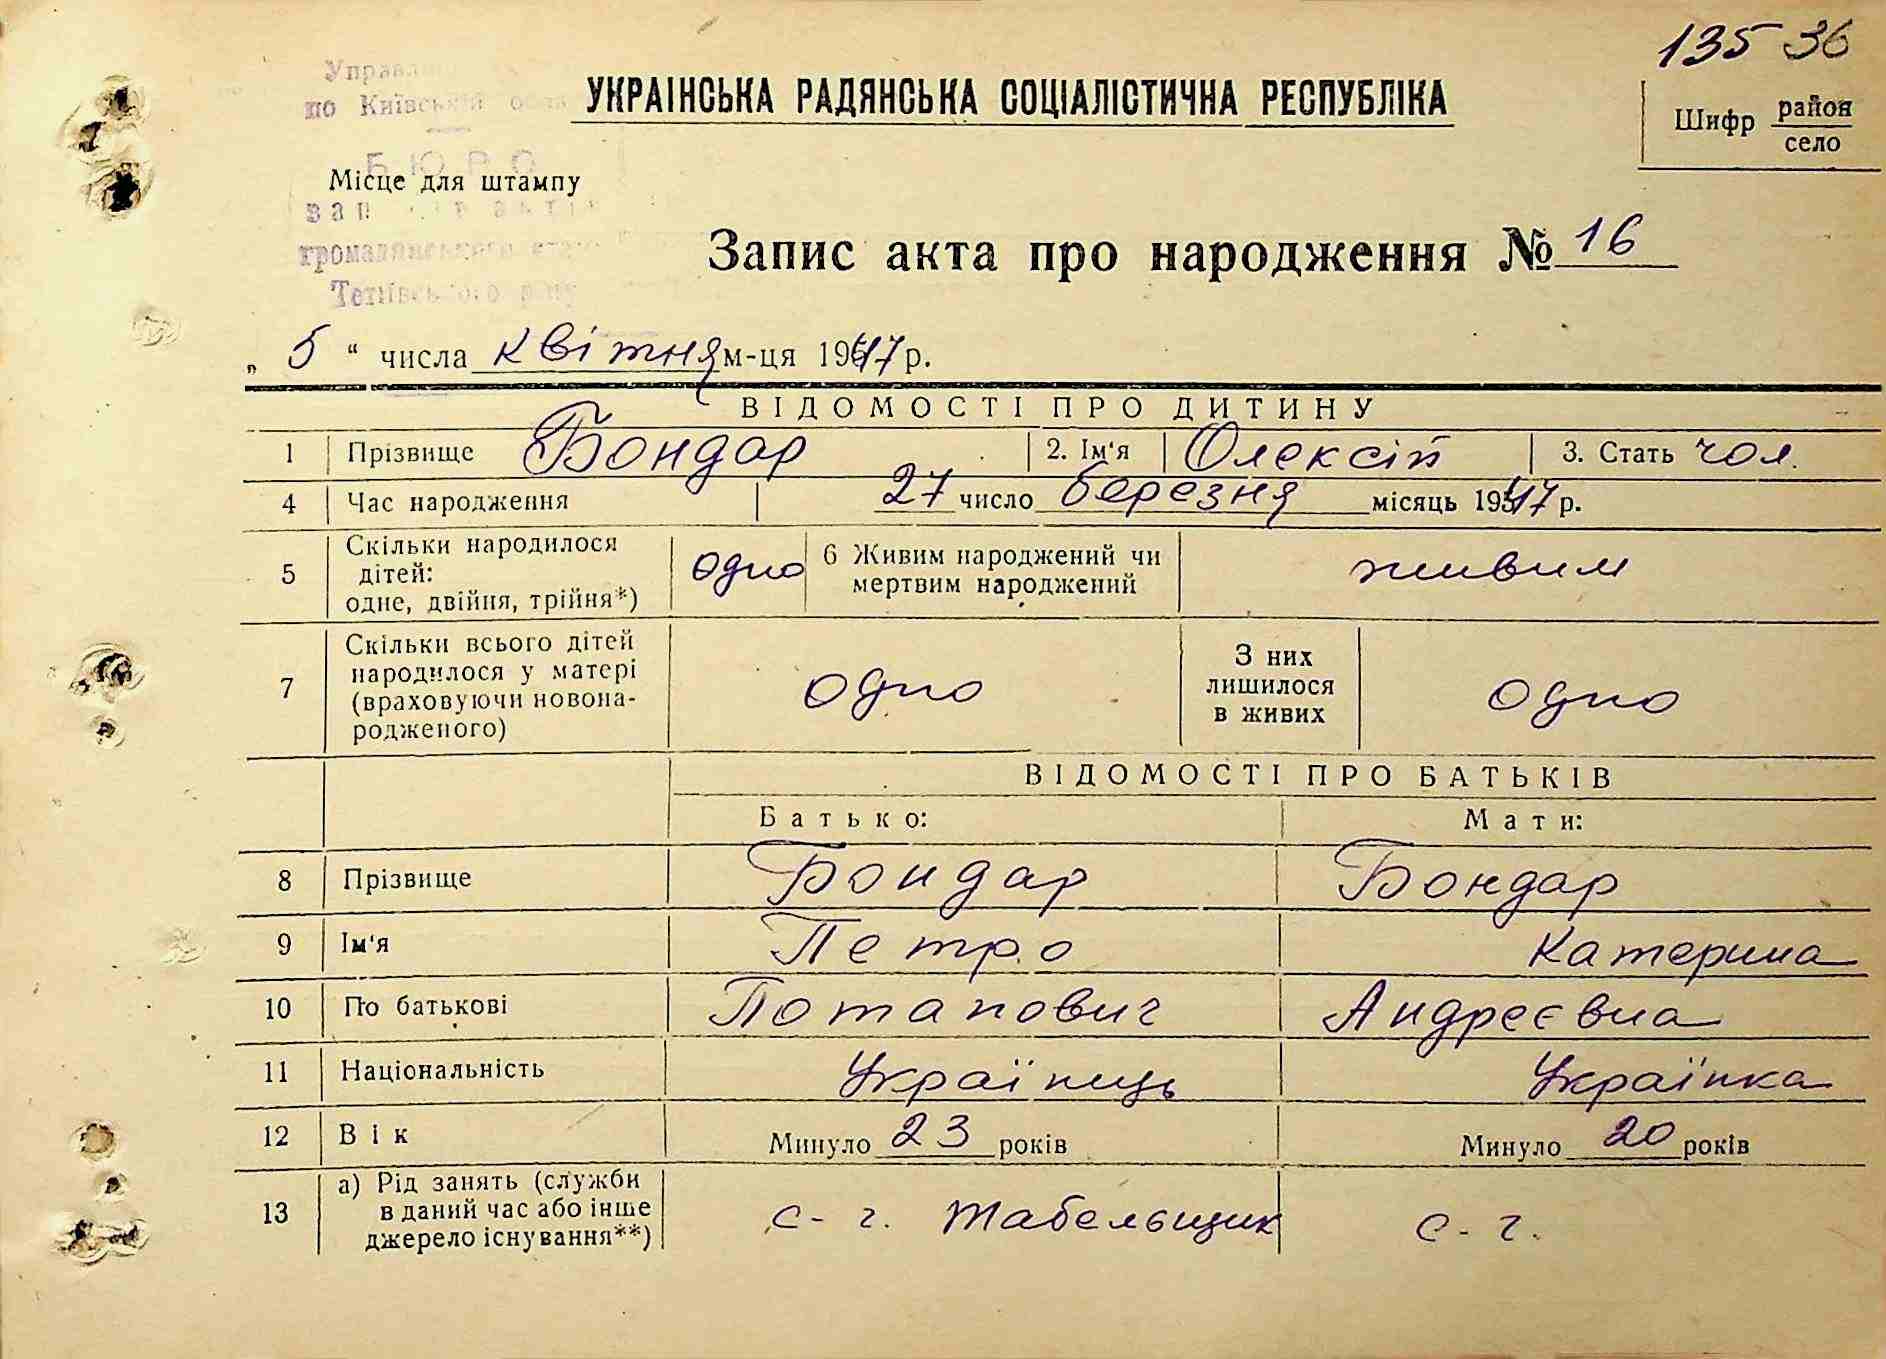 135 36
УКРАЇНСЬКА РАДЯНСЬКА СОЦІАЛІСТИЧНА РЕСПУБЛІКА
Шифр район
село
по Київській
БЮРО
Місце для штампу
громадянського
Запис акта про народження № 16
„ 5 “ числа квітня м-ця 1947 р.
ВІДОМОСТІ ПРО ДИТИНУ
1 Прізвище Бондар 2. Ім'я Олексій 3. Стать чол.
4 Час народження 27 число березня місяць 1947 р.
5 Скільки народилося дітей: одне, двійня, трійня*) одно 6 Живим народжений чи мертвим народжений живим
7 Скільки всього дітей народилося у матері (враховуючи новонародженого) одно З них лишилося в живих одно
ВІДОМОСТІ ПРО БАТЬКІВ
Батько: Мати:
8 Прізвище Бондар Бондар
9 Ім'я Петро Катерина
10 По батькові Потапович Андреєвна
11 Національність Українець Українка
12 Вік Минуло 23 років Минуло 20 років
13 а) Рід занять (служби в даний час або інше джерело існування**) с-г. табельщик с-г.